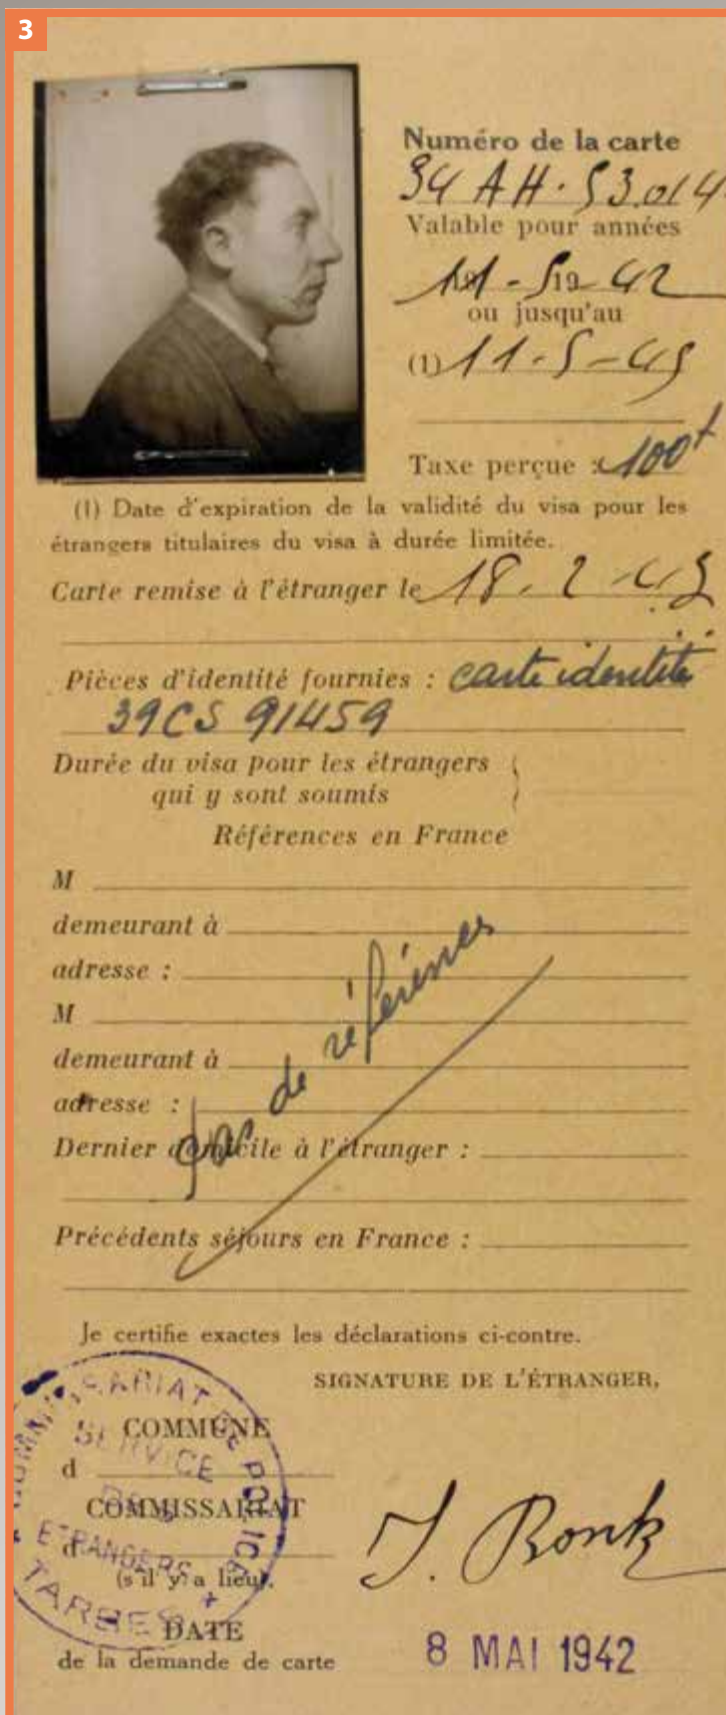 3
Numéro de la carte
34 AH. 53.014
Valable pour années
11-5 19 42
ou jusqu'au
(1) 11-5-45
Taxe perçue : 100f
(1) Date d'expiration de la validité du visa pour les
étrangers titulaires du visa à durée limitée.
Carte remise à l'étranger le 18.2-43
Pièces d'identité fournies : carte identité
39CS 91459
Durée du visa pour les étrangers
qui y sont soumis
Références en France
M
demeurant à
adresse :
M
demeurant à
adresse :
pas de références
Dernier domicile à l'étranger :
Précédents séjours en France :
Je certifie exactes les déclarations ci-contre.
SIGNATURE DE L'ÉTRANGER,
COMMUNE
d
COMMISSARIAT
d
(s'il y a lieu).
DATE
de la demande de carte
COMMISSARIAT DE POLICE
SERVICE
DES
ETRANGERS
TARBES
J. Bonk
8 MAI 1942